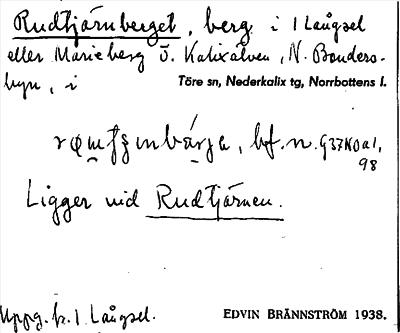 Rudtjärnberget, berg i 1 Långsel
eller Marieberg ö. Kalixälven, N. Bonders-
byn, i Töre sn, Nederkalix tg, Norrbottens l.
bf. n. G37N0a1,
98
Ligger vid Rudtjärnen.
Uppg. fr. 1 Långsel. EDVIN BRÄNNSTRÖM 1938.